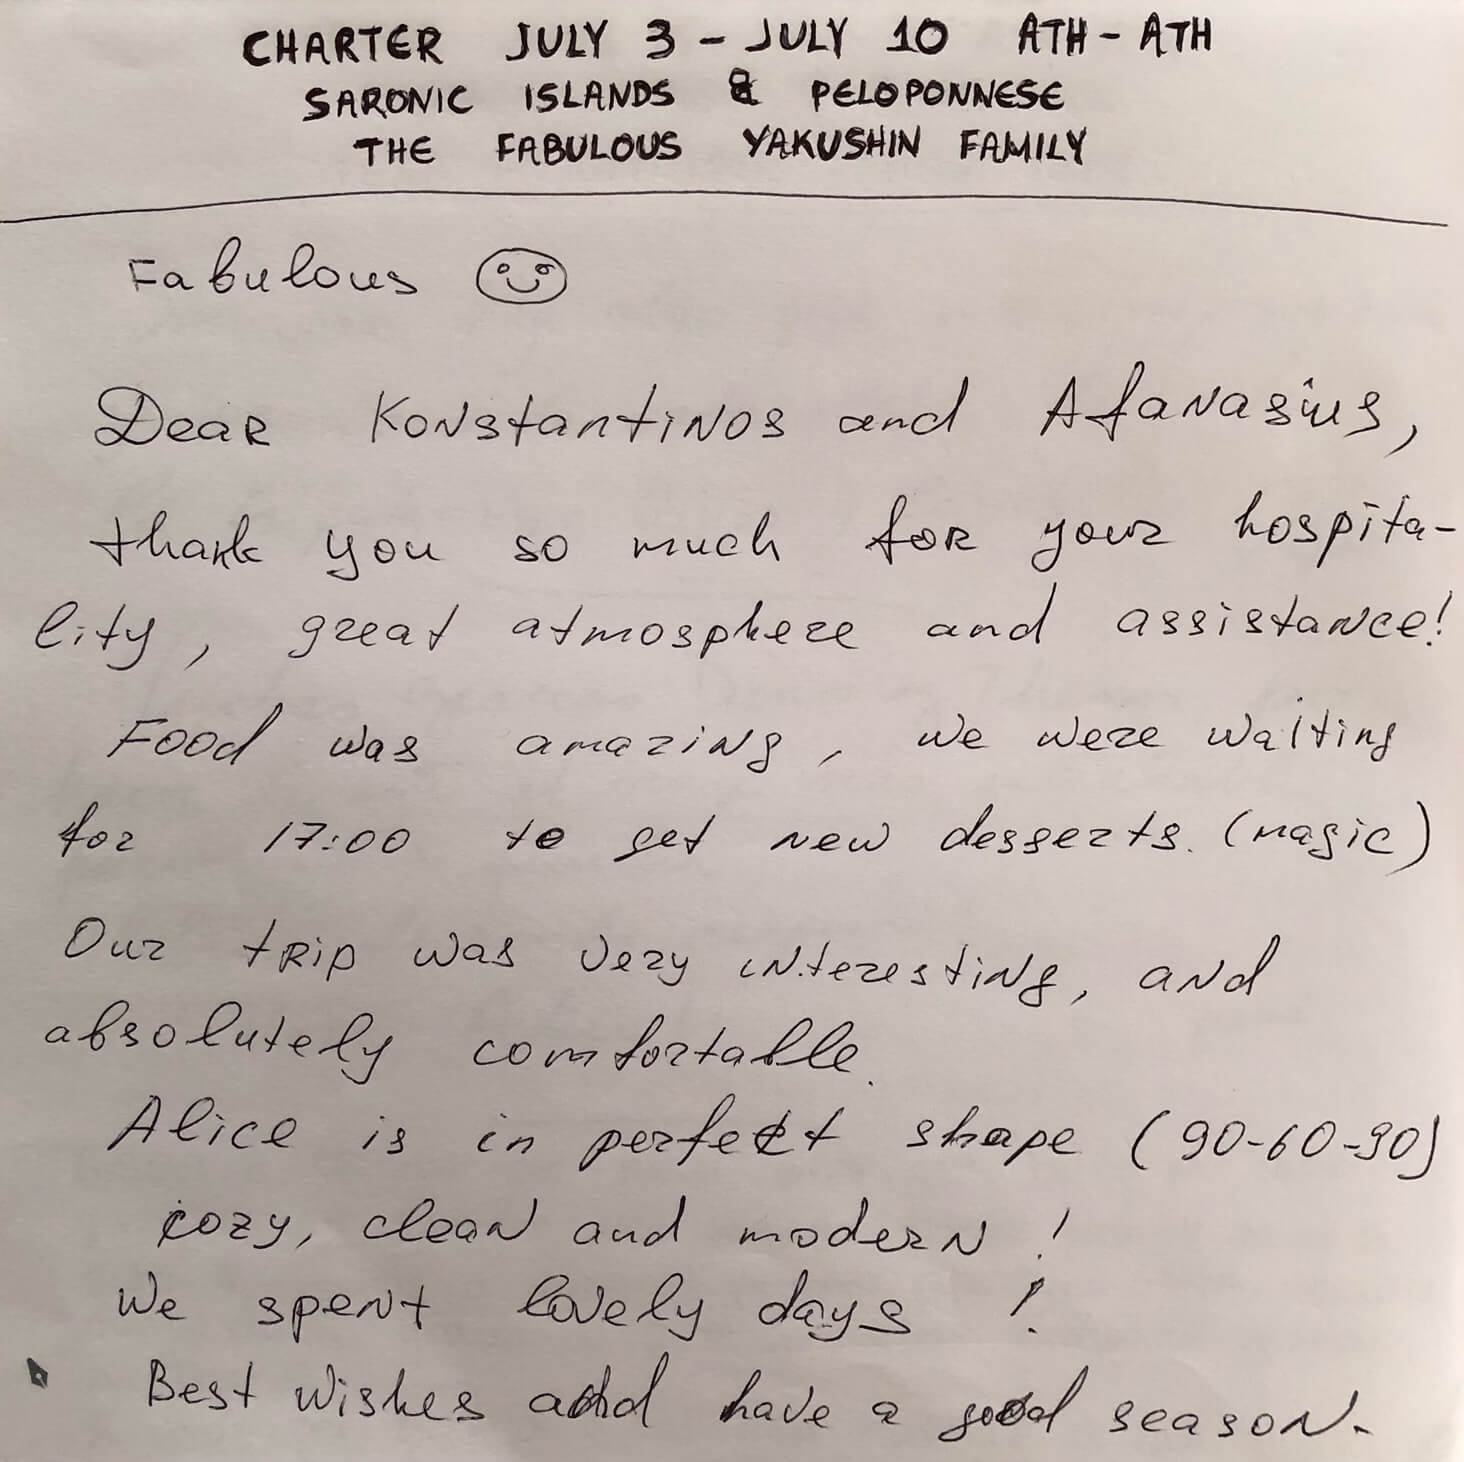 CHARTER JULY 3 - JULY 10 ATH - ATH
SARONIC ISLANDS & PELOPONNESE
THE FABULOUS YAKUSHIN FAMILY
Fabulous ☺
Dear Konstantinos and Afanasius,
thank you so much for your hospita-
lity, great atmosphere and assistance!
Food was amazing, we were waiting
for 17:00 to get new desserts. (magic)
Our trip was very interesting, and
absolutely comfortable.
Alice is in perfect shape (90-60-90)
cozy, clean and modern!
We spent lovely days!
Best wishes and have a good season.